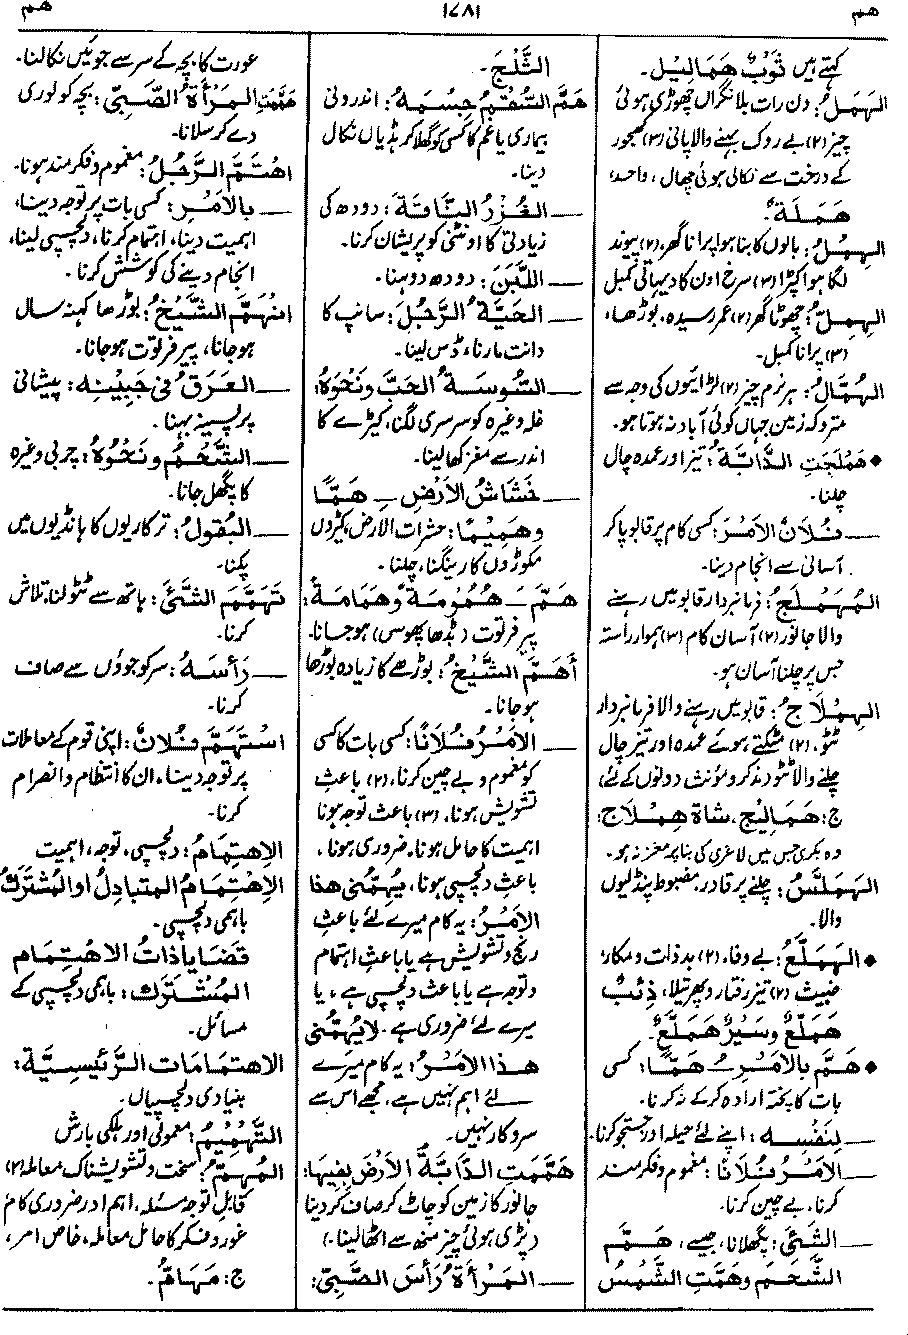 هم
۱۷۸۱
هم
کہتے ہیں ثَوْبٌ هَمَالِيْل۔
الهَمَلُ: دن رات بلا نگراں چھوڑی ہوئی
چیز (۲) بے روک بہنے والا پانی (۳) کھجور
کے درخت سے نکالی ہوئی چھال، واحد:
هَمَلَةٌ۔
الهِمْلُ: بالوں کا بنا ہوا پرانا گھر، (۲) پیوند
لگا ہوا کپڑا (۳) سرخ اون کا دیہاتی کمبل
الهِمِلُّ: چھوٹا گھر (۲) عمر رسیدہ، بوڑھا،
(۳) پرانا کمبل۔
الهُمَّالُ: ہر نرم چیز (۲) لڑائیوں کی وجہ سے
متروکہ زمین جہاں کوئی آباد نہ ہوتا ہو۔
◆ هَمْلَجَتِ الدَّابَّةُ: تیز اور عمدہ چال
چلنا۔
— فُلَانٌ الأَمْرَ: کسی کام پر قابو پا کر
آسانی سے انجام دینا۔
المُهَمْلَجُ: فرمانبردار قابو میں رہنے
والا جانور (۲) آسان کام (۳) ہموار راستہ
جس پر چلنا آسان ہو۔
الهِمْلَاجُ: قابو میں رہنے والا فرمانبردار
ٹٹو، (۲) مٹکتے ہوئے عمدہ اور تیز چال
چلنے والا ٹٹو (مذکر و مؤنث دونوں کے لئے)
ج: هَمَالِيْج، شاة هِمْلَاج:
وہ بکری جس میں لاغری کی بنا پر مغز نہ ہو۔
الهَمَلَّسُ: چلنے پر قادر، مضبوط پنڈلیوں
والا۔
◆ الهَمَلَّعُ: بے وفا، (۲) بد ذات و مکار،
خبیث (۲) تیز رفتار و پھرتیلا، ذِئْبٌ
هَمَلَّعٌ وسَيْرٌ هَمَلَّعٌ۔
◆ هَمَّ بالأَمْرِ ـُ هَمًّا: کسی
بات کا پختہ ارادہ کر کے نہ کرنا۔
— لِنَفْسِه: اپنے لئے حیلہ اور جستجو کرنا۔
— الأَمْرُ فُلَانًا: مغموم و فکر مند
کرنا، بے چین کرنا۔
— الشَّئَ: پگھلانا، جیسے، هَمَّ
الشَّحْمَ وهَمَّتِ الشَّمْسُ
الثَّلْجَ۔
هَمَّ السُّقْمُ جِسْمَهُ: اندرونی
بیماری یا غم کا کسی کو گھلا کر ہڈیاں نکال
دینا۔
— الغُزْرُ النَّاقَةَ: دودھ کی
زیادتی کا اونٹنی کو پریشان کرنا۔
— اللَّبَنَ: دودھ دوہنا۔
— الحَيَّةُ الرَّجُلَ: سانپ کا
دانت مارنا، ڈس لینا۔
— السُّوسَةُ الحَبَّ ونَحْوَهُ:
غلہ وغیرہ کو سرسری لگنا، کیڑے کا
اندر سے مغز کھا لینا۔
— خَشَاشُ الأَرْضِ ـِ هَمًّا
وهَمِيْمًا: حشرات الارض، کیڑوں
مکوڑوں کا رینگنا، چلنا۔
هَمَّ ـِ هُمُومَةً وهَمَامَةً:
پیر فرتوت (بڈھا پھوس) ہو جانا۔
أَهَمَّ الشَّيْخُ: بوڑھے کا زیادہ بوڑھا
ہو جانا۔
— الأَمْرُ فُلَانًا: کسی بات کا کسی
کو مغموم و بے چین کرنا، (۲) باعث
تشویش ہونا، (۳) باعث توجہ ہونا
اہمیت کا حامل ہونا۔ ضروری ہونا،
باعث دلچسپی ہونا، يُهِمُّنِي هذا
الأَمْرُ: یہ کام میرے لئے باعثِ
رنج و تشویش ہے یا باعثِ اہتمام
و توجہ ہے یا باعث دلچسپی ہے، یا
میرے لئے ضروری ہے۔ لا يُهِمُّنِي
هذا الأَمْرُ: یہ کام میرے
لئے اہم نہیں ہے، مجھے اس سے
سروکار نہیں۔
هَمَّمَتِ الدَّابَّةُ الأَرْضَ بِفِيهَا:
جانور کا زمین کو چاٹ کر صاف کر دینا
(پڑی ہوئی چیز منھ سے اٹھا لینا۔)
— المَرْأَةُ رَأْسَ الصَّبِيِّ:
عورت کا بچہ کے سر سے جوئیں نکالنا۔
هَمَّمَتِ المَرْأَةُ الصَّبِيَّ: بچہ کو لوری
دے کر سلانا۔
اهْتَمَّ الرَّجُلُ: مغموم و فکر مند ہونا۔
— بِالأَمْرِ: کسی بات پر توجہ دینا،
اہمیت دینا، اہتمام کرنا، دلچسپی لینا،
انجام دینے کی کوشش کرنا۔
انْهَمَّ الشَّيْخُ: بوڑھا کہنہ سال
ہو جانا، پیر فرتوت ہو جانا۔
— العَرَقُ فِي جَبِيْنِه: پیشانی
پر پسینہ بہنا۔
— الشَّحْمُ ونَحْوُهُ: چربی وغیرہ
کا پگھل جانا۔
— البُقُولُ: ترکاریوں کا ہانڈیوں میں
پکنا۔
تَهَمَّمَ الشَّئَ: ہاتھ سے ٹٹولنا، تلاش
کرنا۔
— رَأْسَهُ: سر کو جوؤں سے صاف
کرنا۔
اسْتَهَمَّ فُلَانٌ: اپنی قوم کے معاملات
پر توجہ دینا، ان کا انتظام و انصرام
کرنا۔
الاِهْتِمَامُ: دلچسپی، توجہ، اہمیت
الاِهْتِمَامُ المتبادِلُ اوالمُشْتَرَكُ
باہمی دلچسپی۔
قَضَايَا ذَاتُ الاهْتِمَام
المُشْتَرَك: باہمی دلچسپی کے
مسائل۔
الاهْتِمَامَات الرَّئِيْسِيَّة:
بنیادی دلچسپیاں۔
التَّهْمِيْمُ: معمولی اور ہلکی بارش
المُهِمُّ: سخت و تشویشناک معاملہ (۲)
قابل توجہ مسئلہ، اہم اور ضروری کام
غور و فکر کا حامل معاملہ، خاص امر،
ج: مَهَامُّ۔